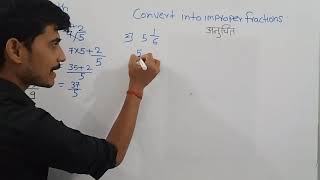 Convert into improper fractions
अनुचित
7 2/5
7×5+2/5
35+2/5
= 37/5
9
2) 5 1/6
5